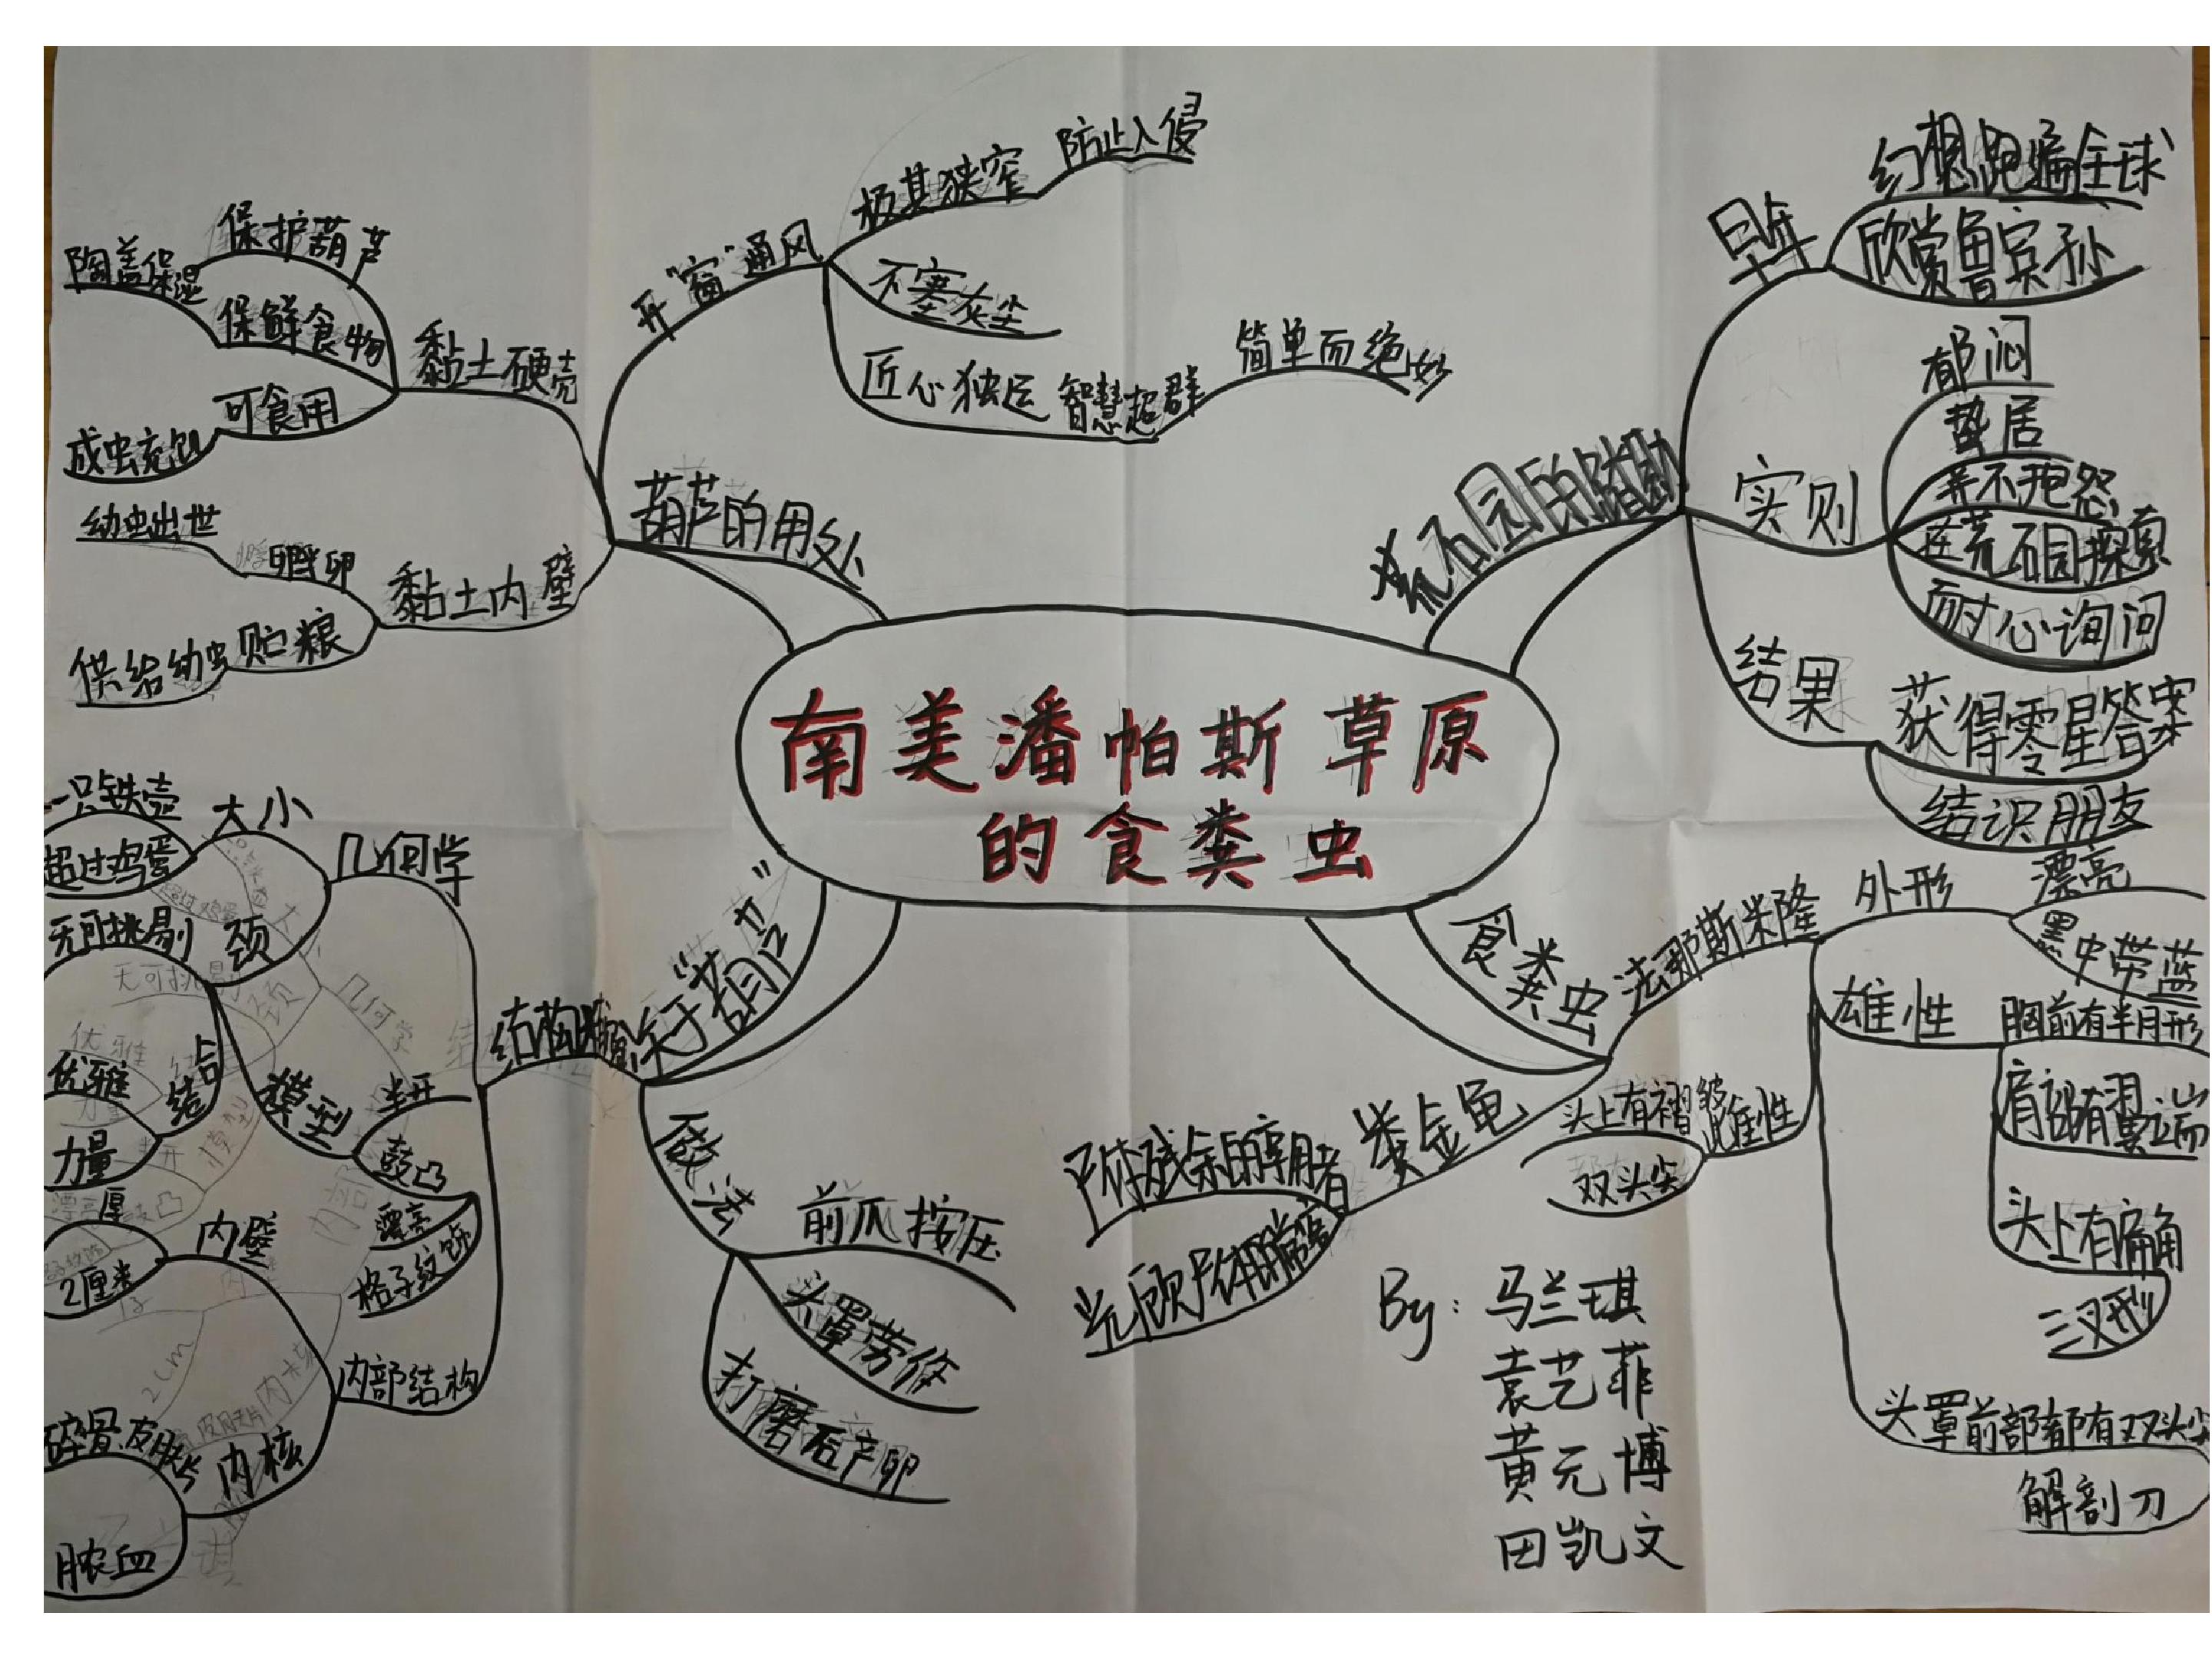 南美潘帕斯草原
的食粪虫
葫芦的用处
开"窗"通风
极其狭窄
防止入侵
不塞灰尘
匠心独运
智慧超群
简单而绝妙
黏土硬壳
保护葫芦
保鲜食物
陶盖保湿
可食用
成虫充饥
黏土内壁
孵卵
幼虫出世
贮粮
供给幼虫
荒石园的踏勘
早年
幻想跑遍全球
欣赏鲁宾孙
实则
郁闷
蛰居
并不抱怨
在荒石园探索
耐心询问
结果
获得零星答案
结识朋友
食粪虫
法那斯米隆
外形
漂亮
黑中带蓝
雄性
胸前有半月形
肩部有翼端
头上有扁角
三叉形
雌性
头上有褶皱
双头尖
头罩前部都有双头尖
解剖刀
粪金龟
关于"葫芦"
结构
几何学
大小
一只铁壶
超过鸡蛋
颈
无可挑剔
结合
优雅
力量
模型
半开
鼓凸
漂亮
格子纹饰
内部结构
内壁
厚
2厘米
内核
碎骨、皮肤片
脓血
做法
前爪按压
头罩劳作
打磨后产卵
By：马兰琪
袁艺菲
黄元博
田凯文